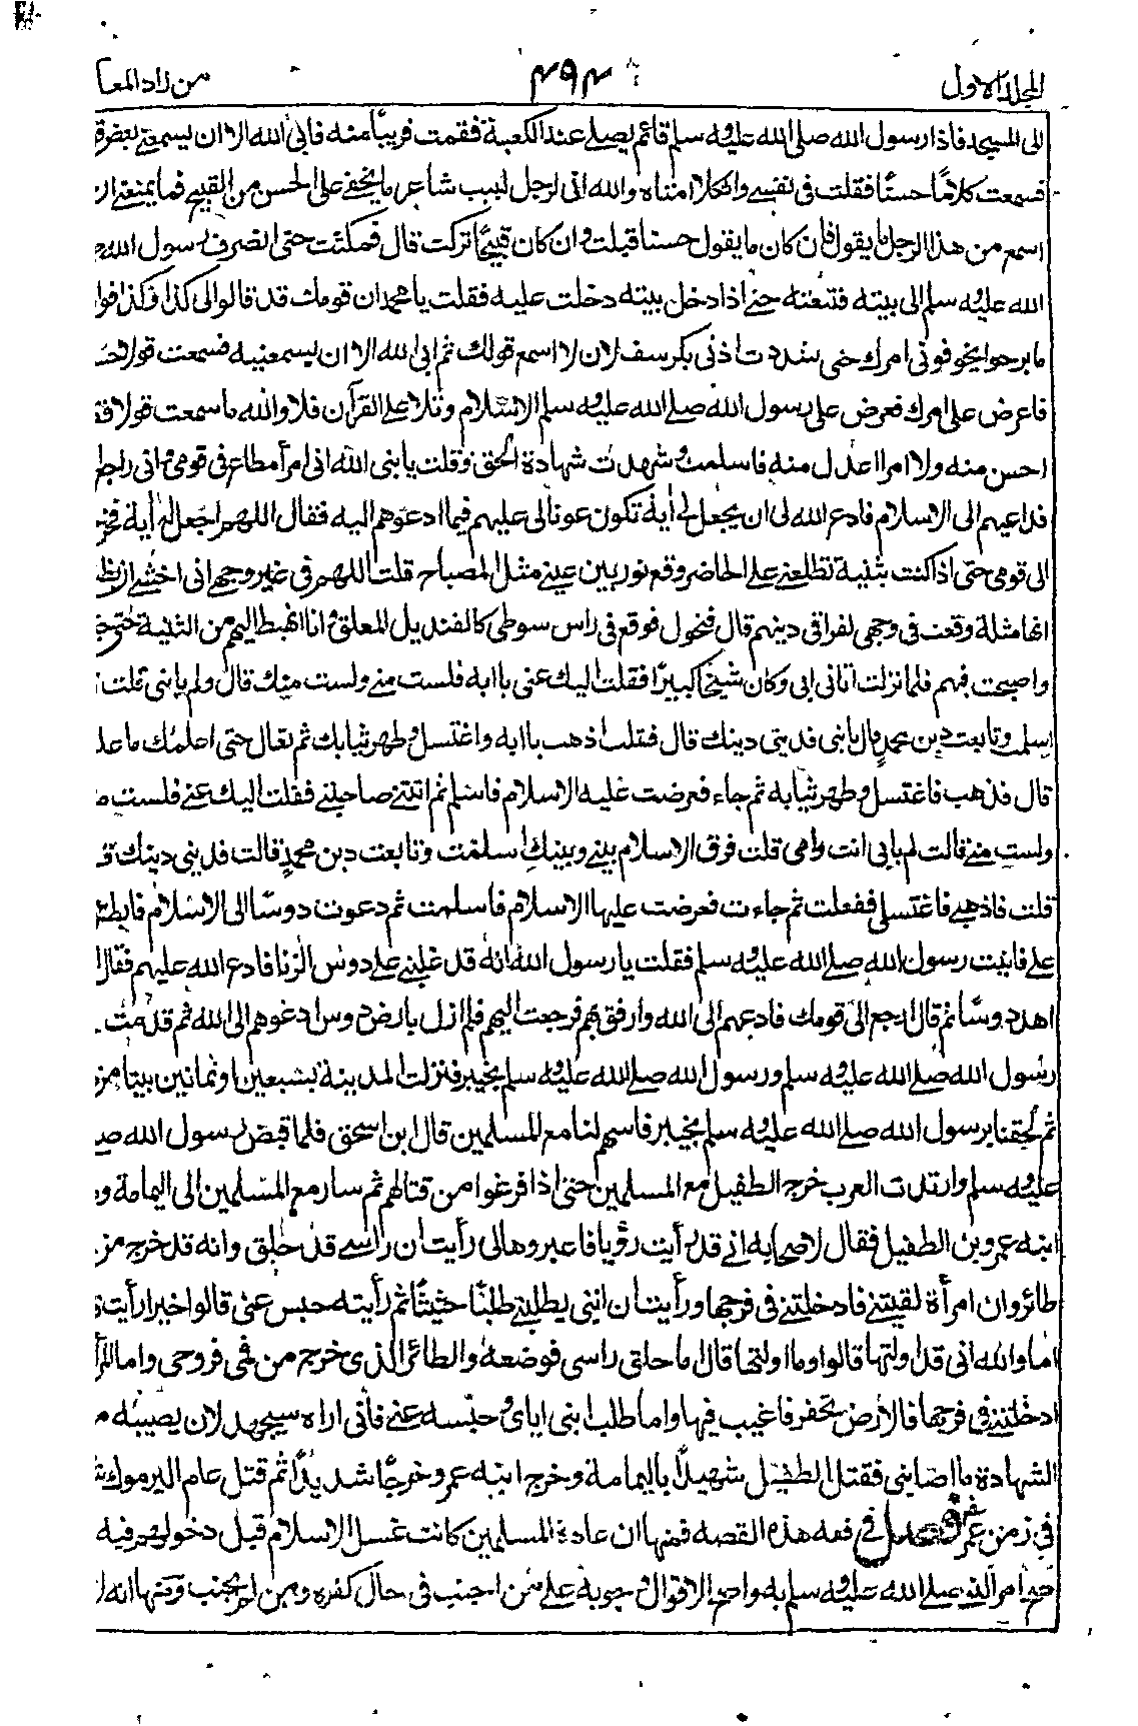 المجلد الاول ٤٩٤ من زاد المعا
الى المسجد فاذا رسول الله صلى الله عليه وسلم قائم يصلے عند الكعبة فقمت قريبًا منه فابى الله الا ان يسمعنے بعض قو
فسمعت كلامًا حسنًا فقلت فى نفسے واثكلا امناه والله انى لرجل لبيب شاعر ما يخفے على الحسن من القبيح فما يمنعنے ان
اسمع من هذا الرجل ما يقول فان كان ما يقول حسنا قبلت وان كان قبيحًا تركت قال فمكثت حتى انصرف رسول الله
الله عليه وسلم الى بيته فتبعته حتے اذا دخل بيته دخلت عليه فقلت يا محمد ان قومك قد قالوا لى كذا وكذا فوا
ما برحوا يخوفونى امرك حتى سددت اذنى بكرسف لان لا اسمع قولك ثم ابى الله الا ان يسمعنيه فسمعت قولا حسـ
فاعرض على امرك فعرض على رسول الله صلے الله عليه وسلم الاسلام وتلا على القرآن فلا والله ما سمعت قولا قط
احسن منه ولا امرا اعدل منه فاسلمت وشهدت شهادة الحق وقلت يا نبى الله انى امرأ مطاع فى قومى وانى راجع
فداعيهم الى الاسلام فادع الله لى ان يجعل لى أية تكون عونا لى عليهم فيما ادعوهم اليه فقال اللهم اجعل له أية فخر
الى قومى حتى اذا كنت بثنية تطلعنے على الحاضر وقع نور بين عينے مثل المصباح قلت اللهم فى غير وجهے انى اخشے ان يظ
انها مثلة وقعت فى وجهى لفراقى دينهم قال فتحول فوقع فى راس سوطى كالقنديل المعلق وانا انهبط اليهم من الثنية حتى جـ
واصبحت فيهم فلما نزلت اتانى ابى وكان شيخًا كبيرًا فقلت اليك عنى يا ابه فلست منے ولست منك قال ولم يا بنى قلت
اسلمت وتابعت دين محمدٍ قال يا بنى فدينى دينك قال فقلت اذهب يا ابه واغتسل وطهر ثيابك ثم تعال حتى اعلمك ما علـ
قال فذهب فاغتسل وطهر ثيابه ثم جاء فعرضت عليه الاسلام فاسلم ثم اتتنے صاحبتے فقلت اليك عنے فلست مـ
ولست منے قالت لم بابى انت وامى قلت فرق الاسلام بينے وبينكِ اسلمت وتابعت دين محمدٍ قالت فدينى دينك قـ
قلت فاذهبے فاغتسلى ففعلت ثم جاءت فعرضت عليها الاسلام فاسلمت ثم دعوت دوسًا الى الاسلام فابطئو
على فاتيت رسول الله صلے الله عليه وسلم فقلت يا رسول الله انه قد غلبنے على دوس الزنا فادع الله عليهم فقال ا
اهد دوسًا ثم قال ارجع الى قومك فادعهم الى الله وارفق بهم فرجعت اليهم فلم ازل بارض دوس ادعوهم الى الله ثم قدمت
رسول الله صلے الله عليه وسلم ورسول الله صلے الله عليه وسلم بخيبر فنزلت المدينة بسبعين او ثمانين بيتا من
ثم لحقنا برسول الله صلے الله عليه وسلم بخيبر فاسهم لنا مع المسلمين قال ابن اسحق فلما قبض رسول الله صـ
عليه وسلم وارتدت العرب خرج الطفيل مع المسلمين حتى اذا فرغوا من قتالهم ثم سار مع المسلمين الى اليمامة و
ابنه عمرو بن الطفيل فقال لاصحابه انے قد رأيت رؤيا فاعبروها لى رأيت ان راسے قد حلق وانه قد خرج من
طائر وان امرأة لقيتنے فادخلتنے فى فرجها ورأيت ان ابنى يطلبنے طلبًا حثيثًا ثم رأيته حبس عنى قالوا خيرا رأيت
اما والله انى قد اولتها قالوا وما اولتها قال اما حلق راسى فوضعه والطائر الذى خرج من فمى فروحى واما المرأ
ادخلتنے فى فرجها فالارض تحفر فاغيب فيها واما طلب ابنى اياى وحبسه عنے فانى اراه سيجهد لان يصيبه مـ
الشهادة ما اصابنى فقتل الطفيل شهيدًا باليمامة وخرج ابنه عمرو خرجًا شديدًا ثم قتل عام اليرموك
فى زمن عمر فصل فى فقه هذه القصة فمنها ان عادة المسلمين كانت غسل الاسلام قبل دخولهم فيه
امر النبے صلے الله عليه وسلم به واصح الاقوال وجوبه على من اجنب فى حال كفره ومن لم يجنب ومنها انه